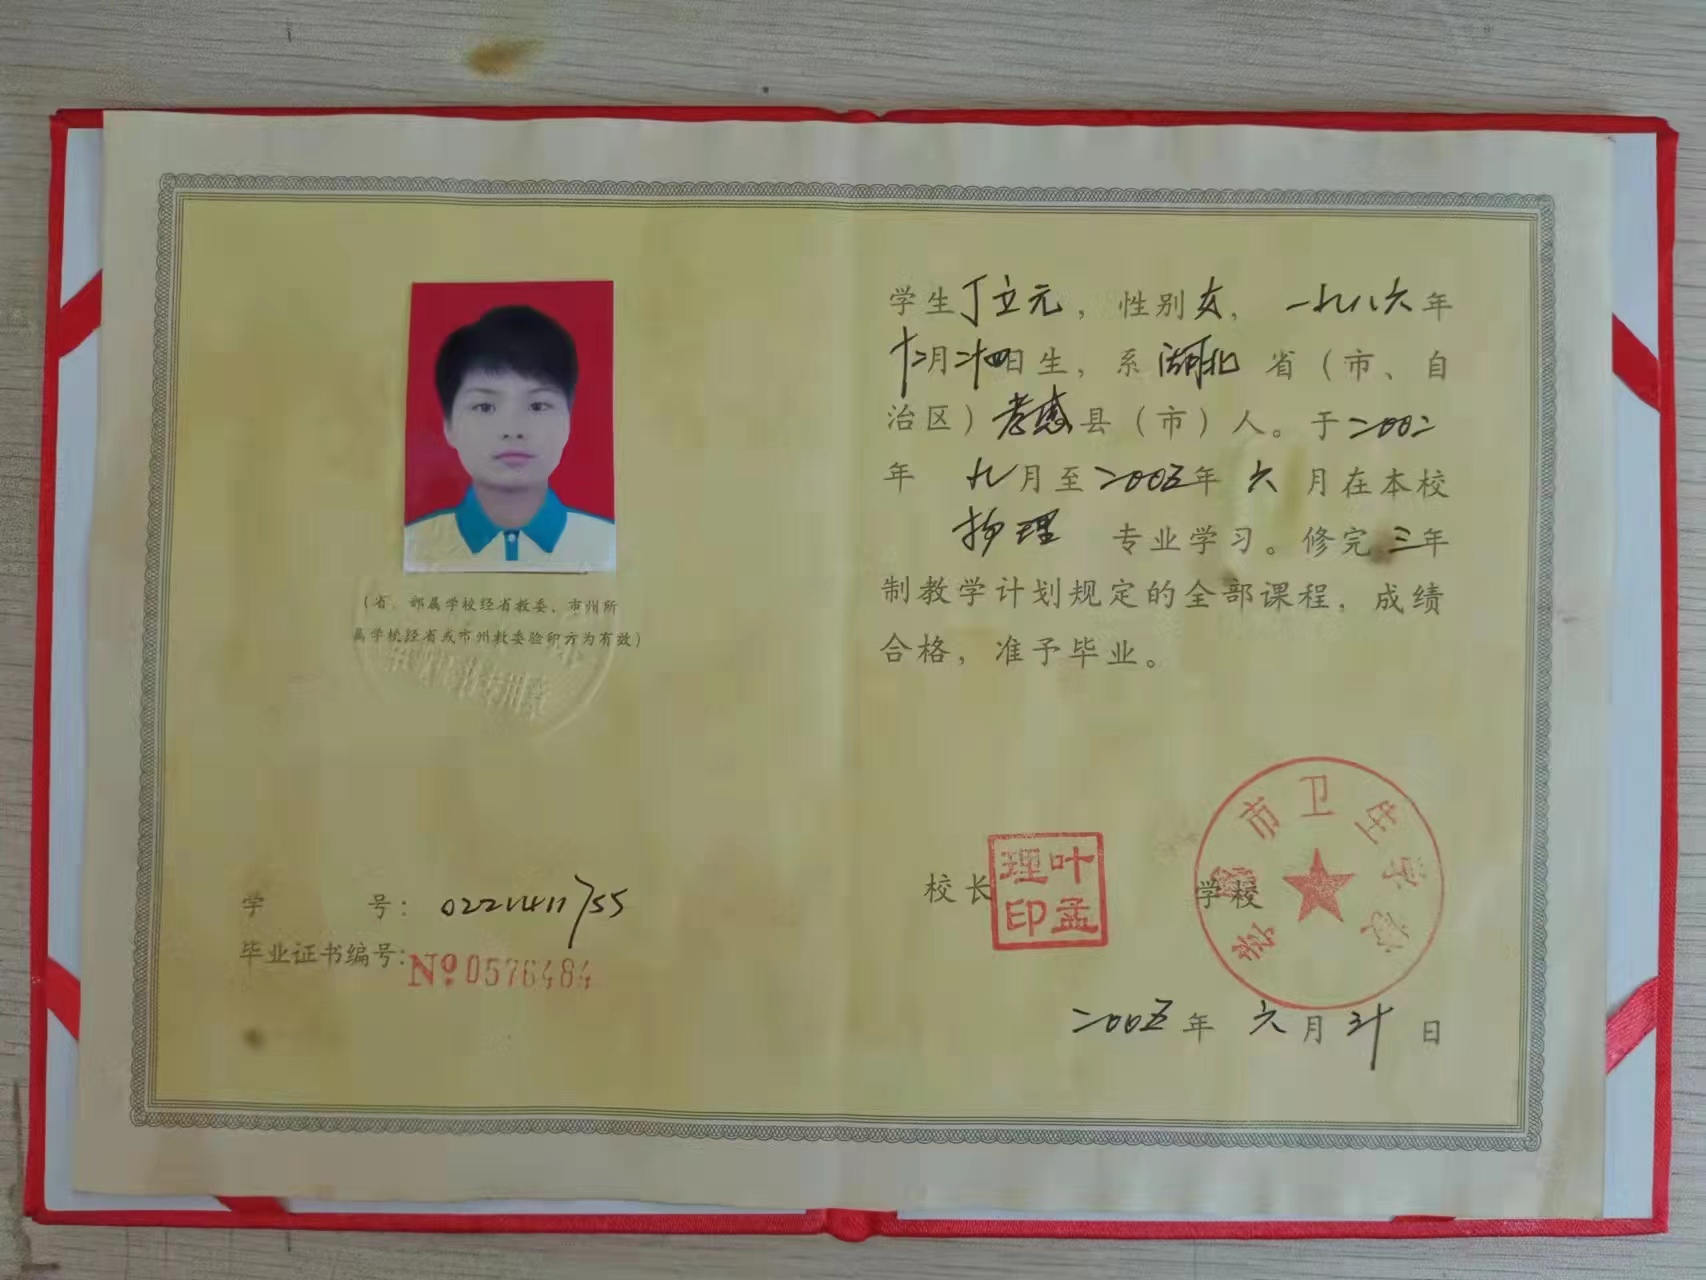 (省、部属学校经省教委、市州所
属学校经省或市州教委验印方为有效)
学 号: 0221411755
毕业证书编号: No 0576484
学生丁立元,性别女,一九八六年
十二月二十四日生,系湖北省(市、自
治区)孝感县(市)人。于二00二
年 九月至二00五年 六月在本校
护理 专业学习。修完三年
制教学计划规定的全部课程,成绩
合格,准予毕业。
校长
叶孟理印
学校
孝感市卫生学校
二00五年 六月三十日